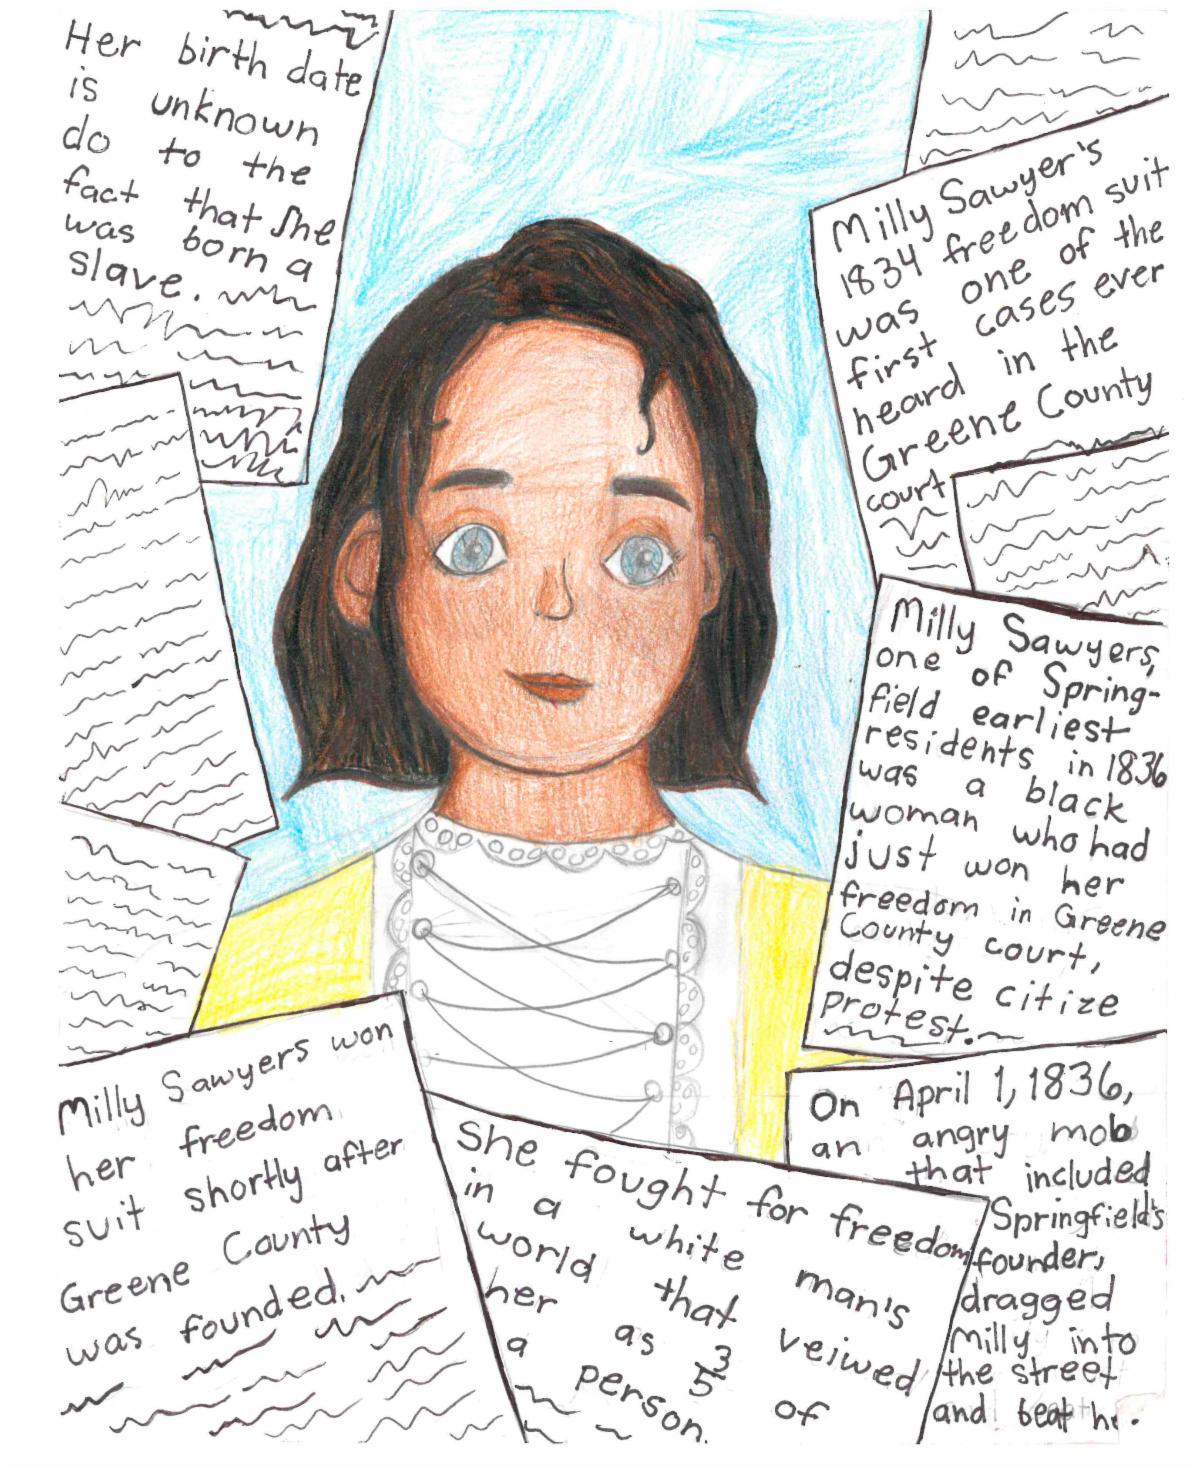 Her birth date
is unknown
do to the
fact that She
was born a
slave.
Milly Sawyer's
1834 freedom suit
was one of the
first cases ever
heard in the
Greene County
court
Milly Sawyers,
one of Spring-
field earliest
residents in 1836
was a black
woman who had
just won her
freedom in Greene
County court,
despite citize
protest.
Milly Sawyers won
her freedom
suit shortly after
Greene County
was founded.
She fought for freedom
in a white man's
world that veiwed
her as 3/5 of
a person.
On April 1, 1836,
an angry mob
that included
Springfield's
founder,
dragged
Milly into
the street
and beat